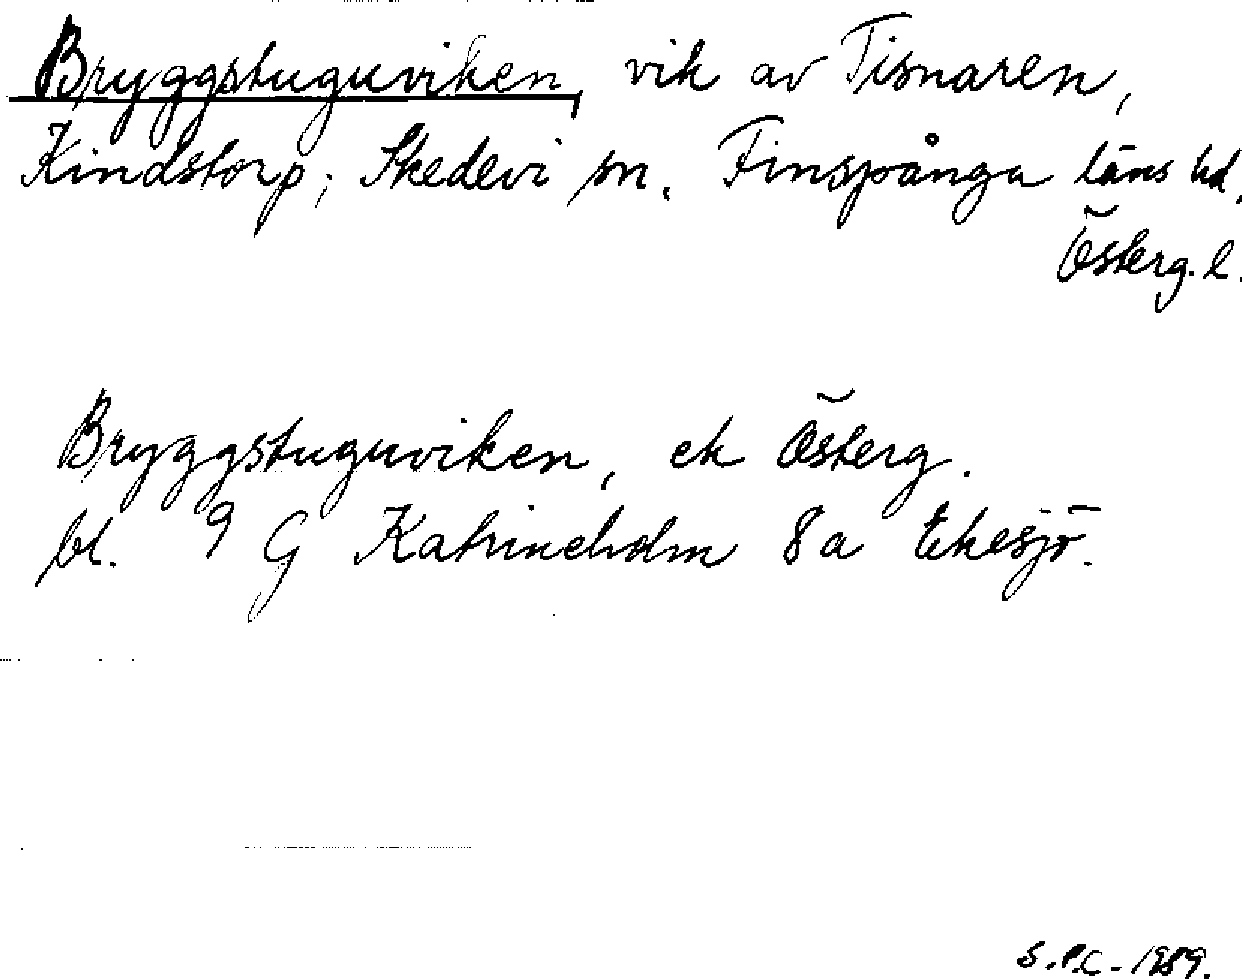 Bryggstuguviken, vik av Tisnaren,
Kindstorp; Skedevi sn. Finspånga läns hd.
Österg. l.
Bryggstuguviken, ek Österg.
bl. 9 G Katrineholm 8a Ekesjö.
S.P.C - 1989.